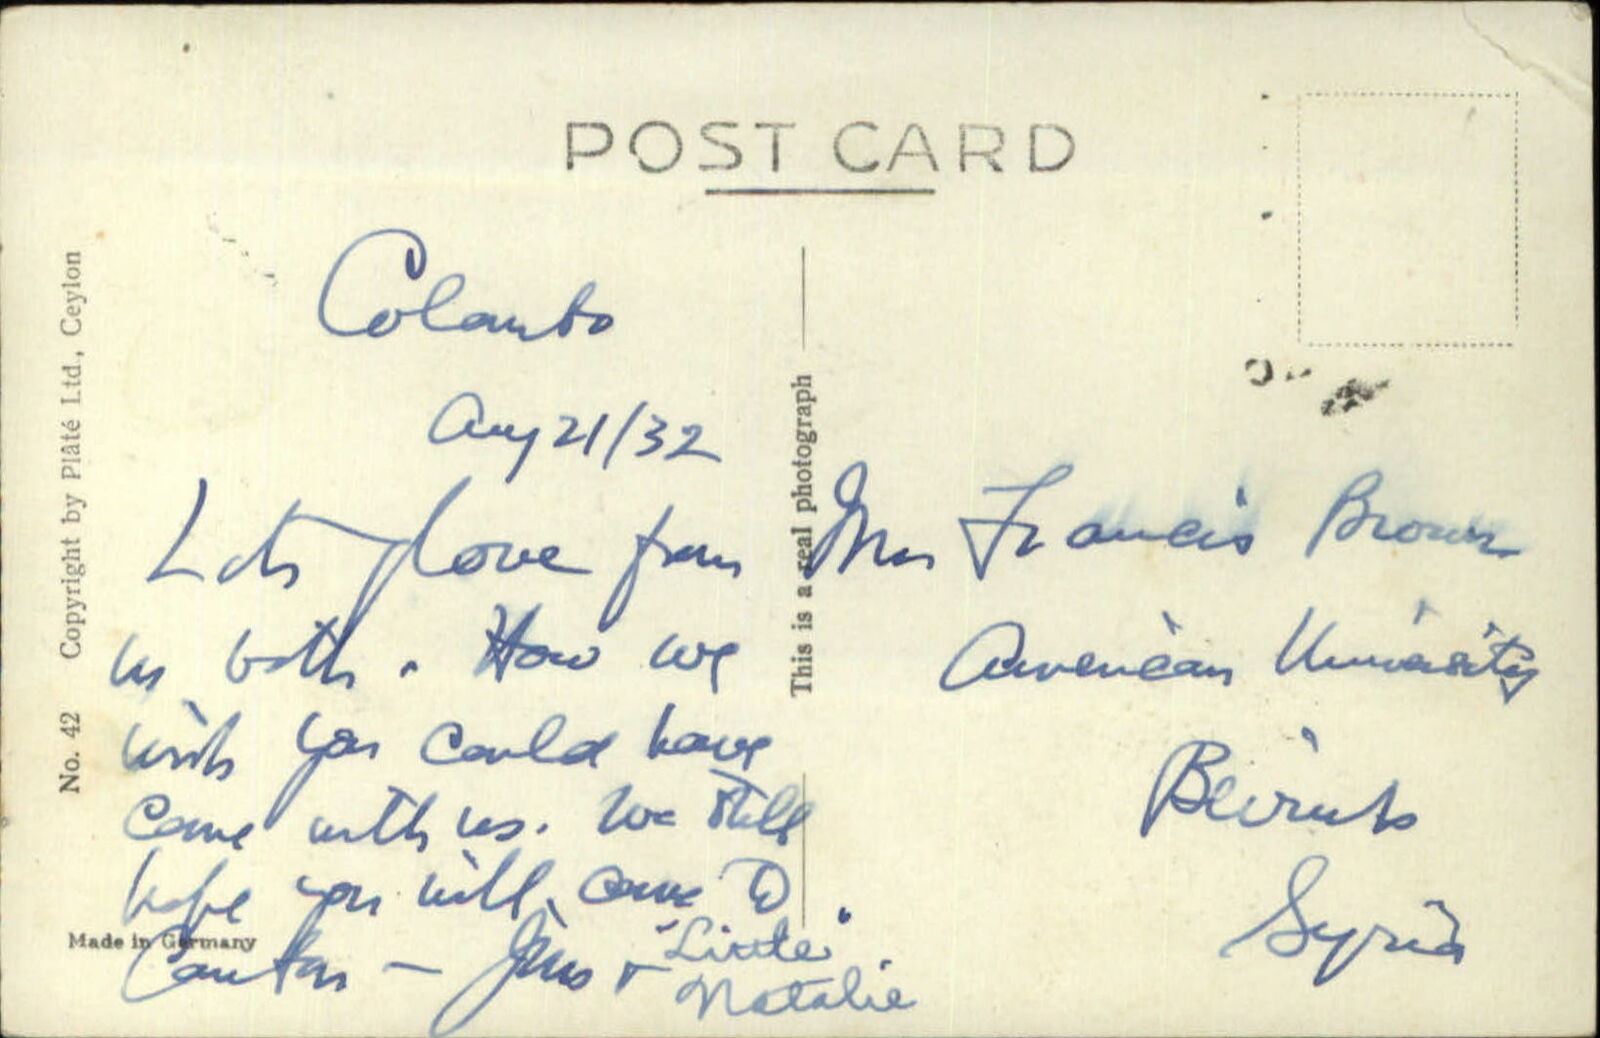 POST CARD
Colombo
Aug 21/32
Lots of love from
us both. How we
wish you could have
come with us. We still
hope you will come to
Canton – Jim + "Little"
Natalie
Mrs Francis Brown
American University
Beirut
Syria
This is a real photograph
No. 42 Copyright by Plâté Ltd., Ceylon
Made in Germany